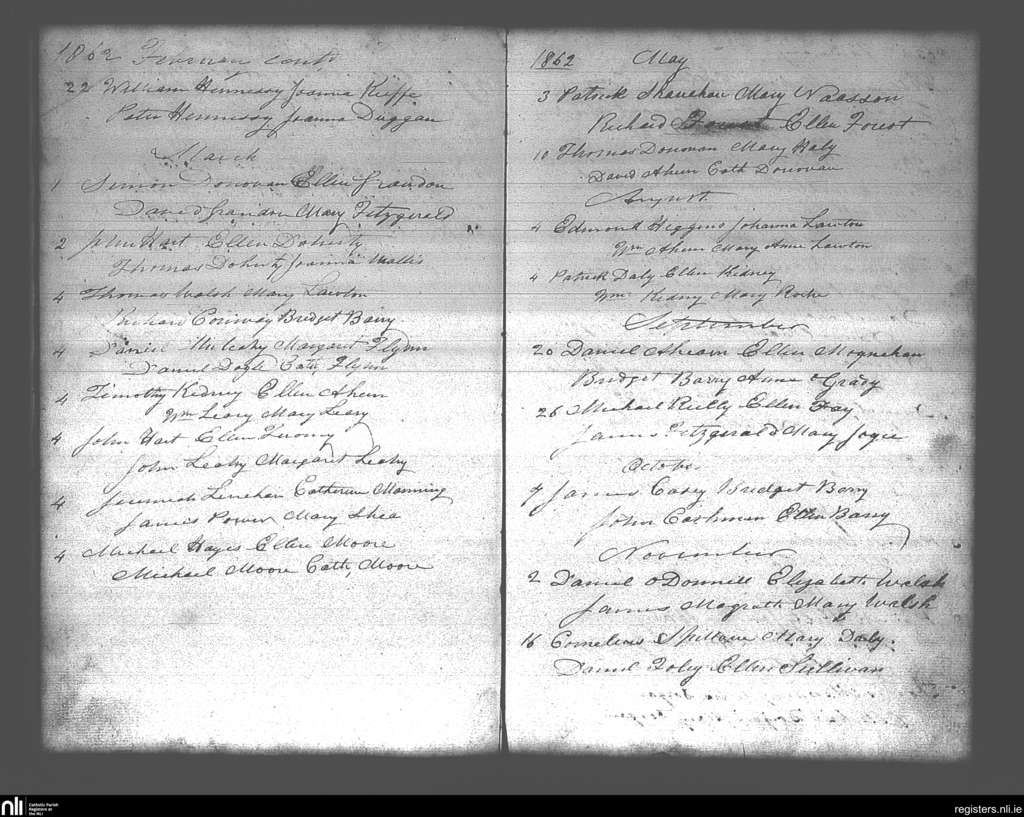 1862 February contd
22 William Hennessy Joanna Kieffe
Peter Hennessy Joanna Duggan
March
1 Simon Donovan Ellen Grandon
David Grandon Mary Fitzgerald
2 John Hart Ellen Doherty
Thomas Doherty Joanna Wallis
4 Thomas Walsh Mary Lawton
Richard Conway Bridget Barry
4 Daniel Mulcahy Margaret Flynn
Daniel Doyle Cath, Flynn
4 Timothy Kidney Ellen Ahern
Wm Leary Mary Leary
4 John Hart Ellen Twomy
John Leahy Margaret Leahy
4 Jeremiah Linehan Catherine Manning
James Power Mary Shea
4 Michael Hayes Ellen Moore
Michael Moore Cath, Moore
1862 May
3 Patrick Shanahan Mary
Richard Ellen Forest
10 Thomas Donovan Mary Haly
David Ahern Cath Donovan
August
4 Edmond Higgins Johanna Lawton
Wm Ahern Mary Anne Lawton
4 Patrick Daly Ellen Kidney
Wm Kidney Mary Roche
September
20 Daniel Ahearn Ellen Moynehan
Bridget Barry Anne OGrady
26 Michael Reilly Ellen Fay
James Fitzgerald Mary Joyce
October
7 James Casey Bridget Barry
John Cashman Ellen Barry
November
2 Daniel ODonnell Elizabeth Walsh
James Magrath Mary Walsh
16 Cornelius Spillane Mary Daly.
Daniel Foley Ellen Sullivan
nli
Catholic Parish
Registers at
the NLI
registers.nli.ie